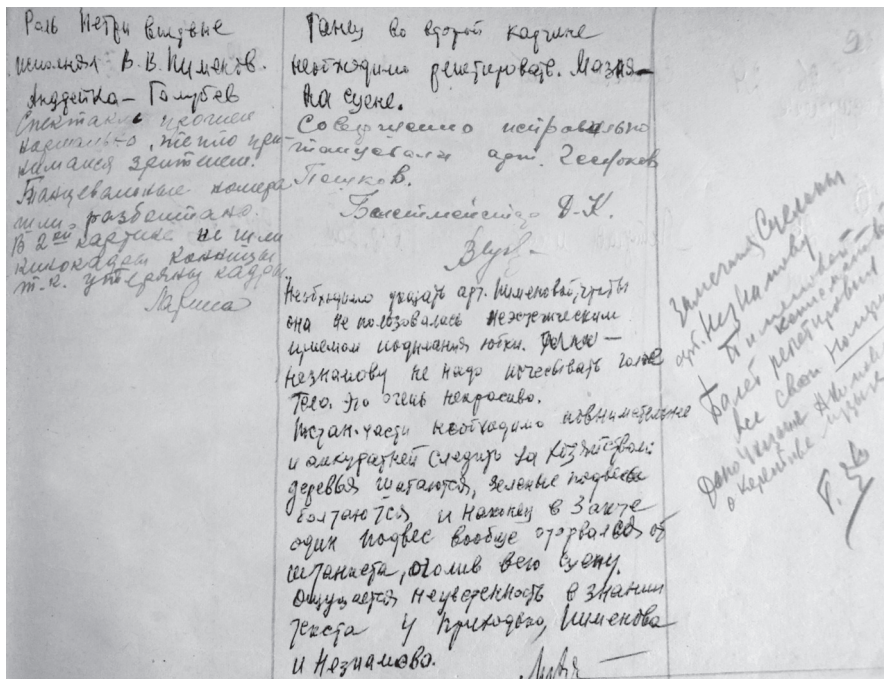 Роль Петри впервые
исполнял В. В. Пименов.
Андрейка – Голубев
Спектакль прошел
нормально, тепло при-
нимался зрителем.
Танцевальные номера
шли разболтано.
В 2ой картине не шли
кинокадры конницы
т.к. утеряны кадры.
Ларина
Танец во второй картине
необходимо репетировать. Мазня
на сцене.
Совершенно неправильно
танцевали арт.
Пешков.
Балетмейстер Д.К.
Необходимо указать арт. Пименовой, чтобы
она не пользовалась неэстетическим
приемом поднимания юбки.
Незнамову не надо почесывать голое
тело. Это очень некрасиво.
Постан. части необходимо повнимательнее
и аккуратней следить за хозяйством:
деревья шатаются, зеленые подвесы
болтаются и наконец в 3 акте
один подвес вообще оторвался от
штанкета, оголив всю сцену.
Ощущается неуверенность в знании
текста у Приходько, Пименова
и Незнамова.
9
Замечания сделаны
арт. Незнамову
и Пименовой
Балет репетировал
все свои номера
о качестве музыки